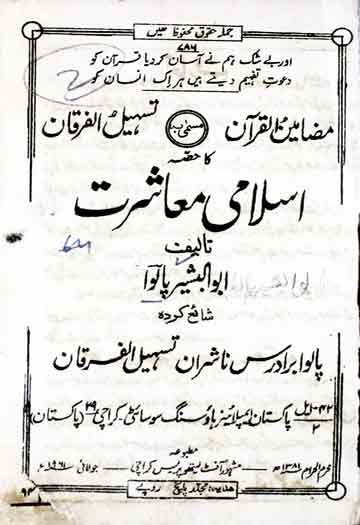 جملہ حقوق محفوظ ہیں
۷۸۶
اور بے شک ہم نے آسان کر دیا قرآن کو
دعوتِ تفہیم دیتے ہیں ہر اک انسان کو
مضامین القرآن مسمّٰی بہ تسہیل الفرقان
کا حصہ
اسلامی معاشرت
تالیف
ابوالبشیر پالوا
شائع کردہ
پالوا برادرس ناشران تسہیل الفرقان
۴۲-ایل/۲ پاکستان ایمپلائیز ہاؤسنگ سوسائٹی کراچی ۲۹ (پاکستان)
محرم الحرام ۱۳۸۱ھ مطبوعہ مشہور آفسٹ لیتھو پریس کراچی جولائی ۱۹۶۱ء
ہدیہ: مجلد پانچ روپے